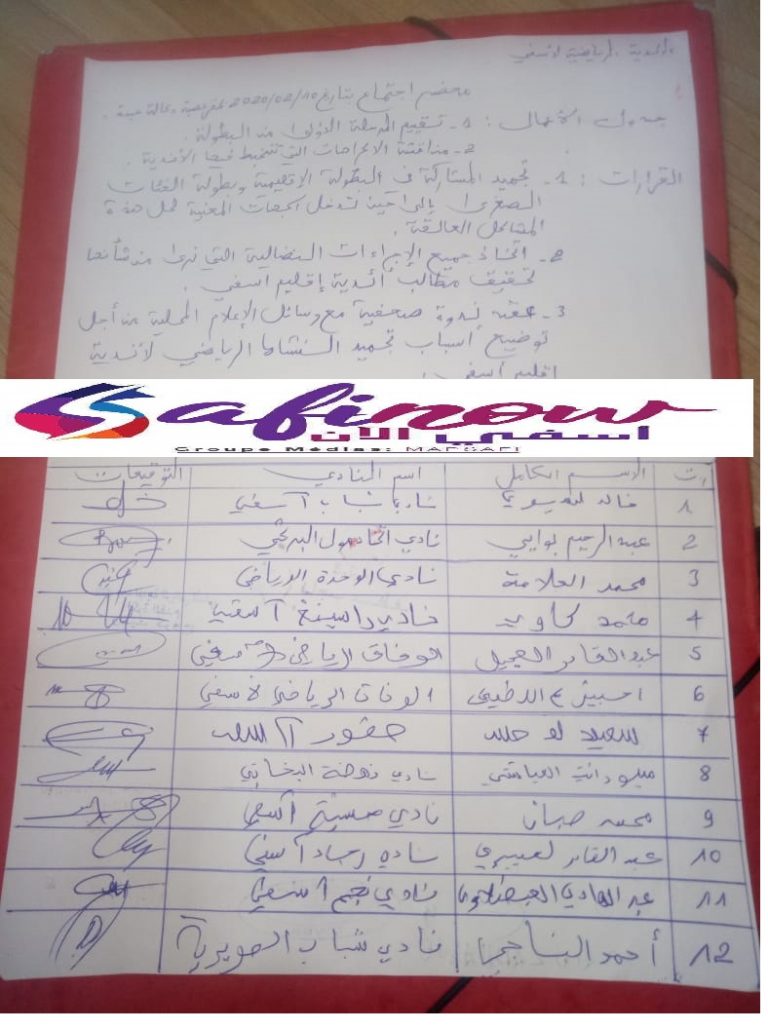 الأندية الرياضية لآسفي
محضر اجتماع بتاريخ 2020/02/10
جدول الأعمال : 1- تقييم المرحلة الأولى من البطولة .
2- مناقشة الإكراهات التي تتخبط فيها الأندية .
القرارات : 1- تجميد المشاركة في البطولة الإقليمية وبطولة الفئات
الصغرى إلى حين تدخل الجهات المعنية لحل هذه
المشاكل العالقة .
2- اتخاذ جميع الإجراءات النضالية التي نرى من شأنها
تحقيق مطالب أندية إقليم آسفي .
3- عقد ندوة صحفية مع وسائل الإعلام المحلية من أجل
توضيح أسباب تجميد النشاط الرياضي لأندية
إقليم آسفي .
Safinow
أسفي الآن
Groupe Médias: MARSAFI
ر.ت الاسم الكامل اسم النادي التوقيعات
1 خالد نادي شباب آسفي
2 عبد الرحيم بوابي نادي البريكي
3 محمد العلامة نادي الوحدة الرياضي
4 محمد كاوي نادي راسينغ آسفي
5 عبد القادر الوفاق الرياضي لآسفي
6 الوفاق الرياضي لآسفي
7 سعيد
8 العياشي نادي نهضة البخاتي
9 محمد صبان نادي آسفي
10 عبد القادر لعبيدي رجاء آسفي
11 عبد الهادي نادي نجم آسفي
12 أحمد الناجي نادي شباب الصويرية